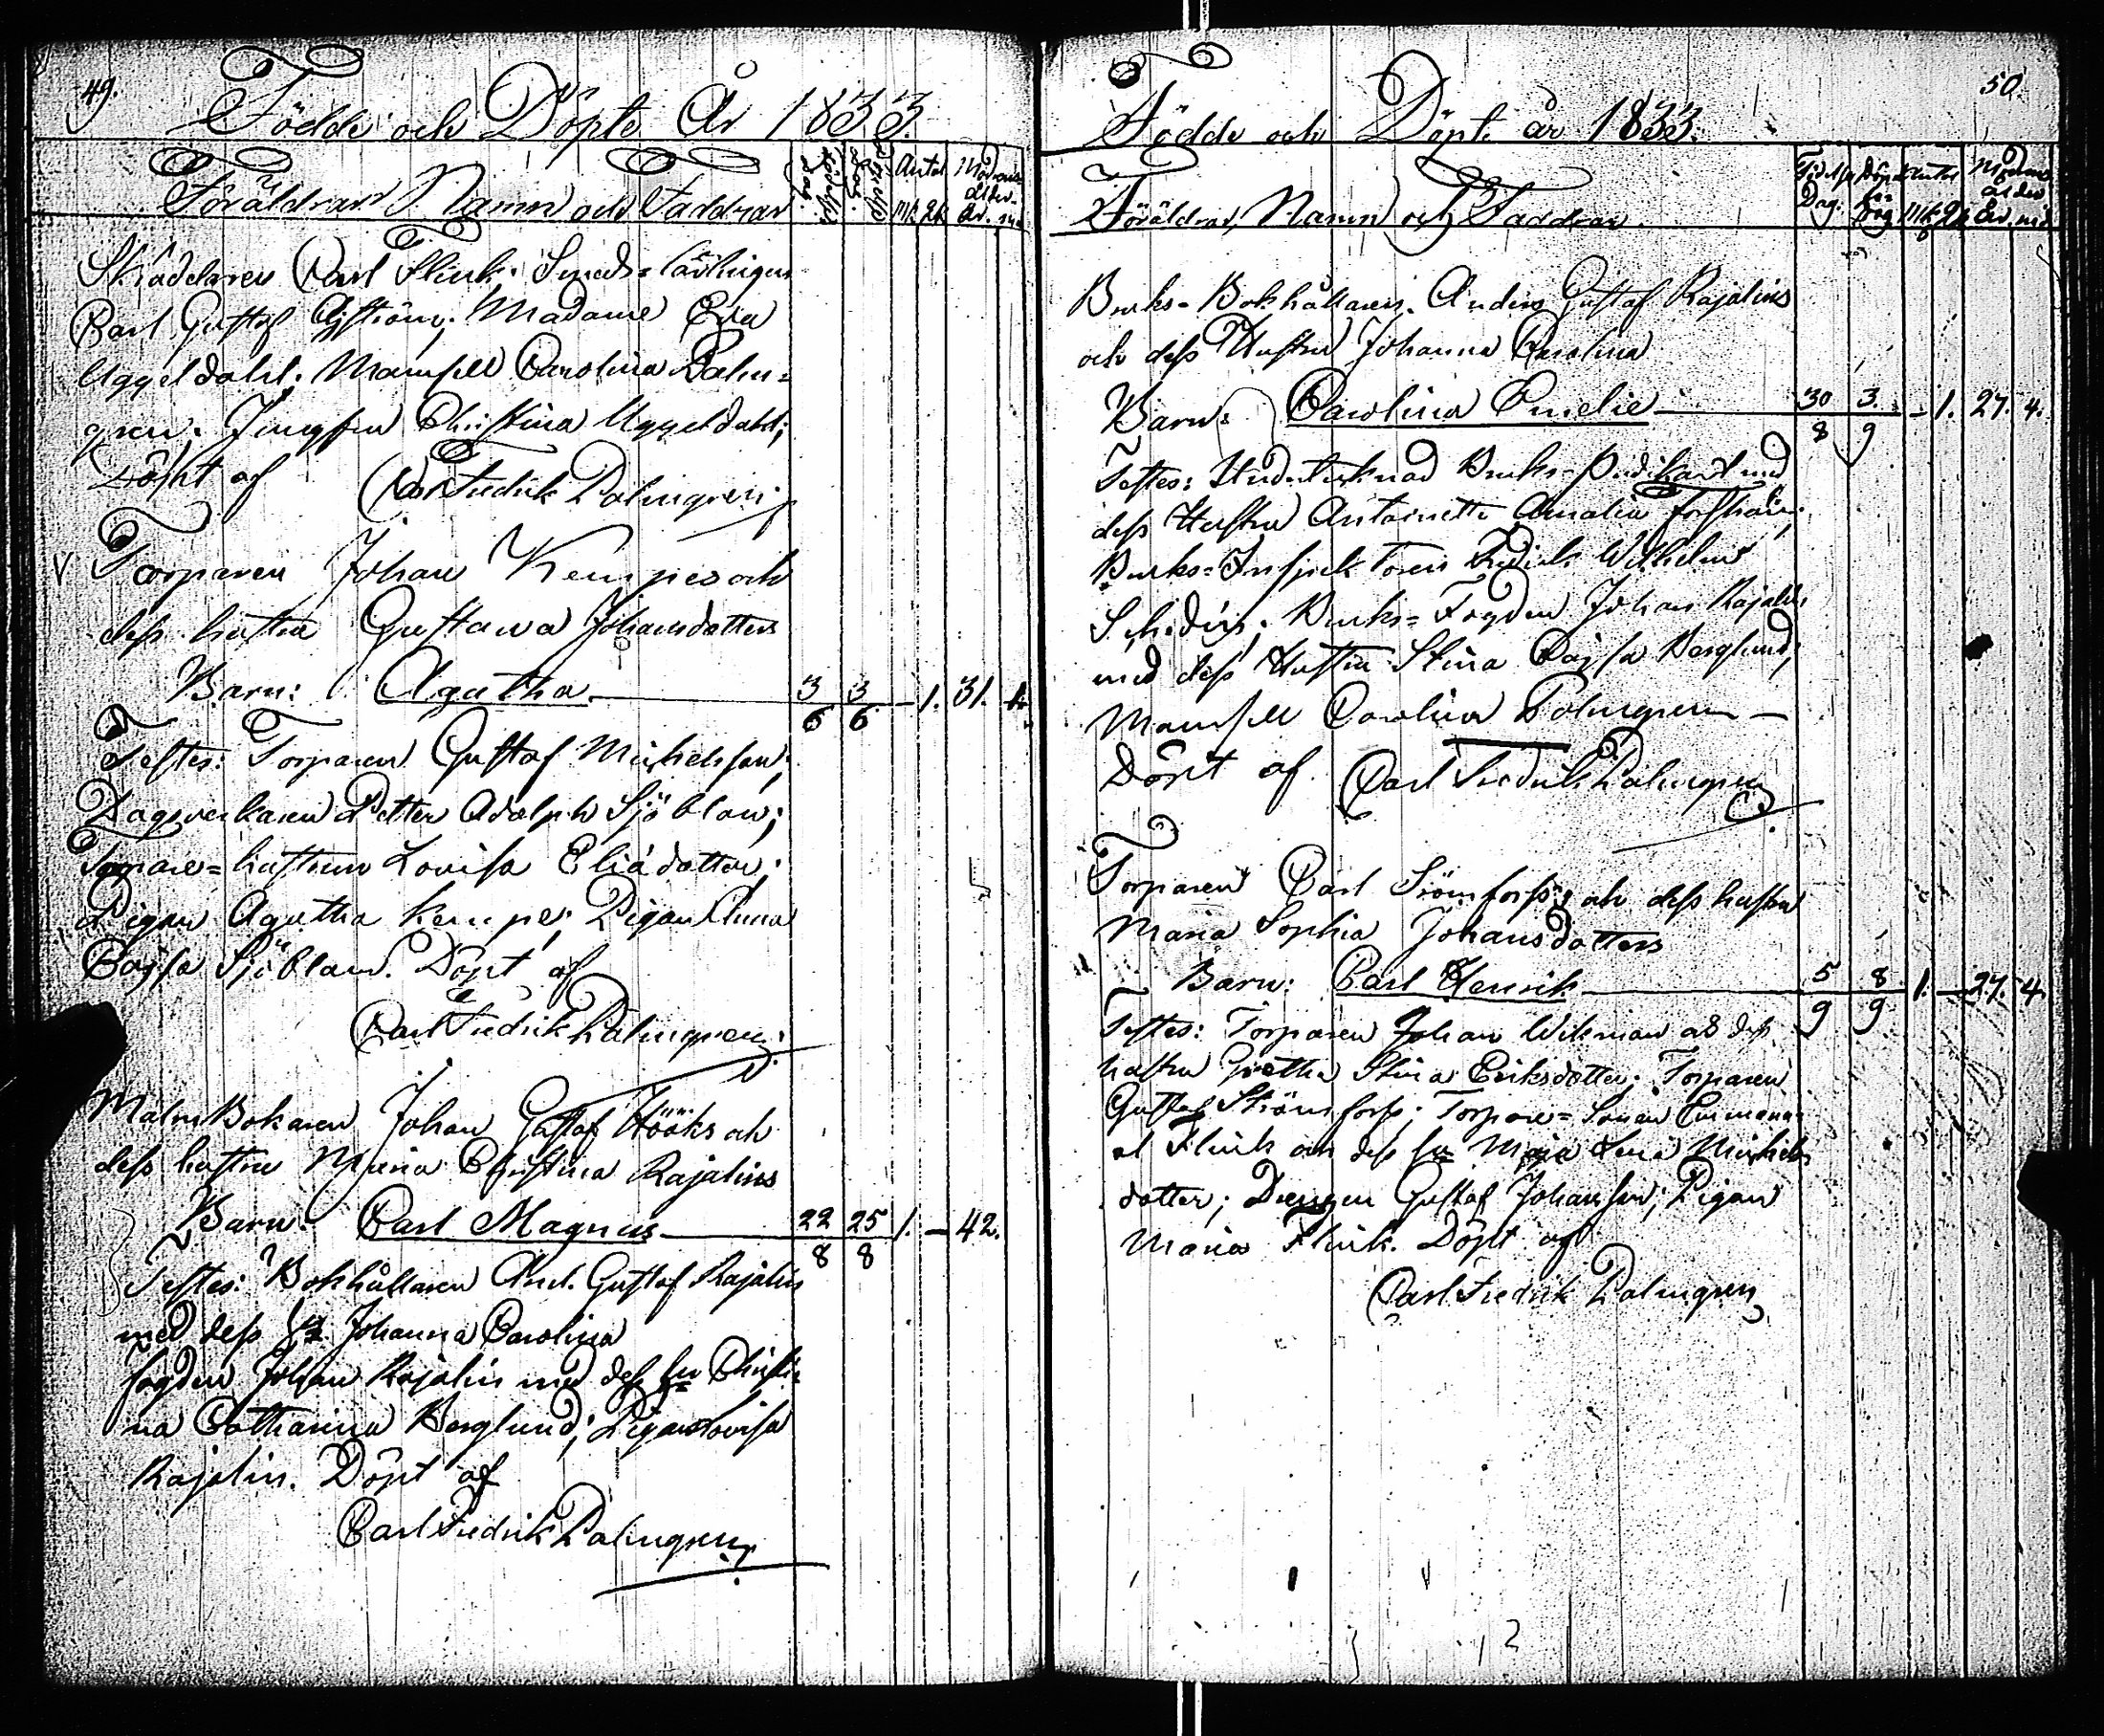 49.
Födde och Döpte År 1833.
Föräldrars Namn och Faddrar
Födelse dag. Döpelse dag. Antal Mk Qk Modrens ålder År. må
Skräddaren Carl Flink; Smeds=lärlingen
Carl Gustaf; Madame Eva
Uggeldahl; Mamsell Carolina Palm=
gren; Jungfru Christina Uggeldahl;
Döpt af Carl Fredrik Palmgren;
Torparen Johan Kempes och
dess hustru Gustava Johansdotters
Barn: Agatha 3/6 3/6 - 1. 31. 4.
Testes: Torparen Gustaf Michelsson;
Dagsverkaren Petter Adolph Sjöblom;
Torpare=hustrun Lovisa Eliædotter;
Pigan Agatha Kempe; Pigan Anna
Cajsa Sjöblom. Döpt af
Carl Fredrik Palmgren.
MalmBokaren Johan Gustaf Hööks och
dess hustru Maria Christina Rajalins
Barn: Carl Magnus 22/8 25/8 1. - 42.
Testes: Bokhållaren And. Gustaf Rajalin
med dess Johanna Carolina
fogden Johan Rajalin med dess hu Christi=
na Catharina Berglund; Pigan Lovisa
Rajalin. Döpt af
Carl Fredrik Palmgren
50.
Födde och Döpte år 1833.
Föräldrar, Namn och Faddrar.
Födelse Dag. Döpelse Dag Antal Mk Qk Modrens ålder År. må
Bruks-Bokhållaren Anders Gustaf Rajalins
och dess Hustru Johanna Carolina
Barn: Carolina Emelie 30/8 3/9 - 1. 27. 4.
Testes: Undertecknad Bruks-Predikant med
dess Hustru Antoinette Amalia
Bruks=Inspektoren Fredrik Wilhelm
Bruks=Fogden Johan Rajalin
med dess Hustru Stina Cajsa Berglund;
Mamsell Carolina Palmgren
Döpt af Carl Fredrik Palmgren
Torparen Carl Strömforss; och dess hustru
Maria Sophia Johansdotters
Barn: Carl Henrik 5/9 8/9 1. - 27. 4
Testes: Torparen Johan Wikman och dess
hustru Gretha Stina Eriksdotter; Torparen
Gustaf Strömforss; Torpare=Sonen Emmanu=
el Flink och dess hu Maja Lena Michels
dotter; Drengen Gustaf Johansson; Pigan
Maria Flink. Döpt af
Carl Fredrik Palmgren